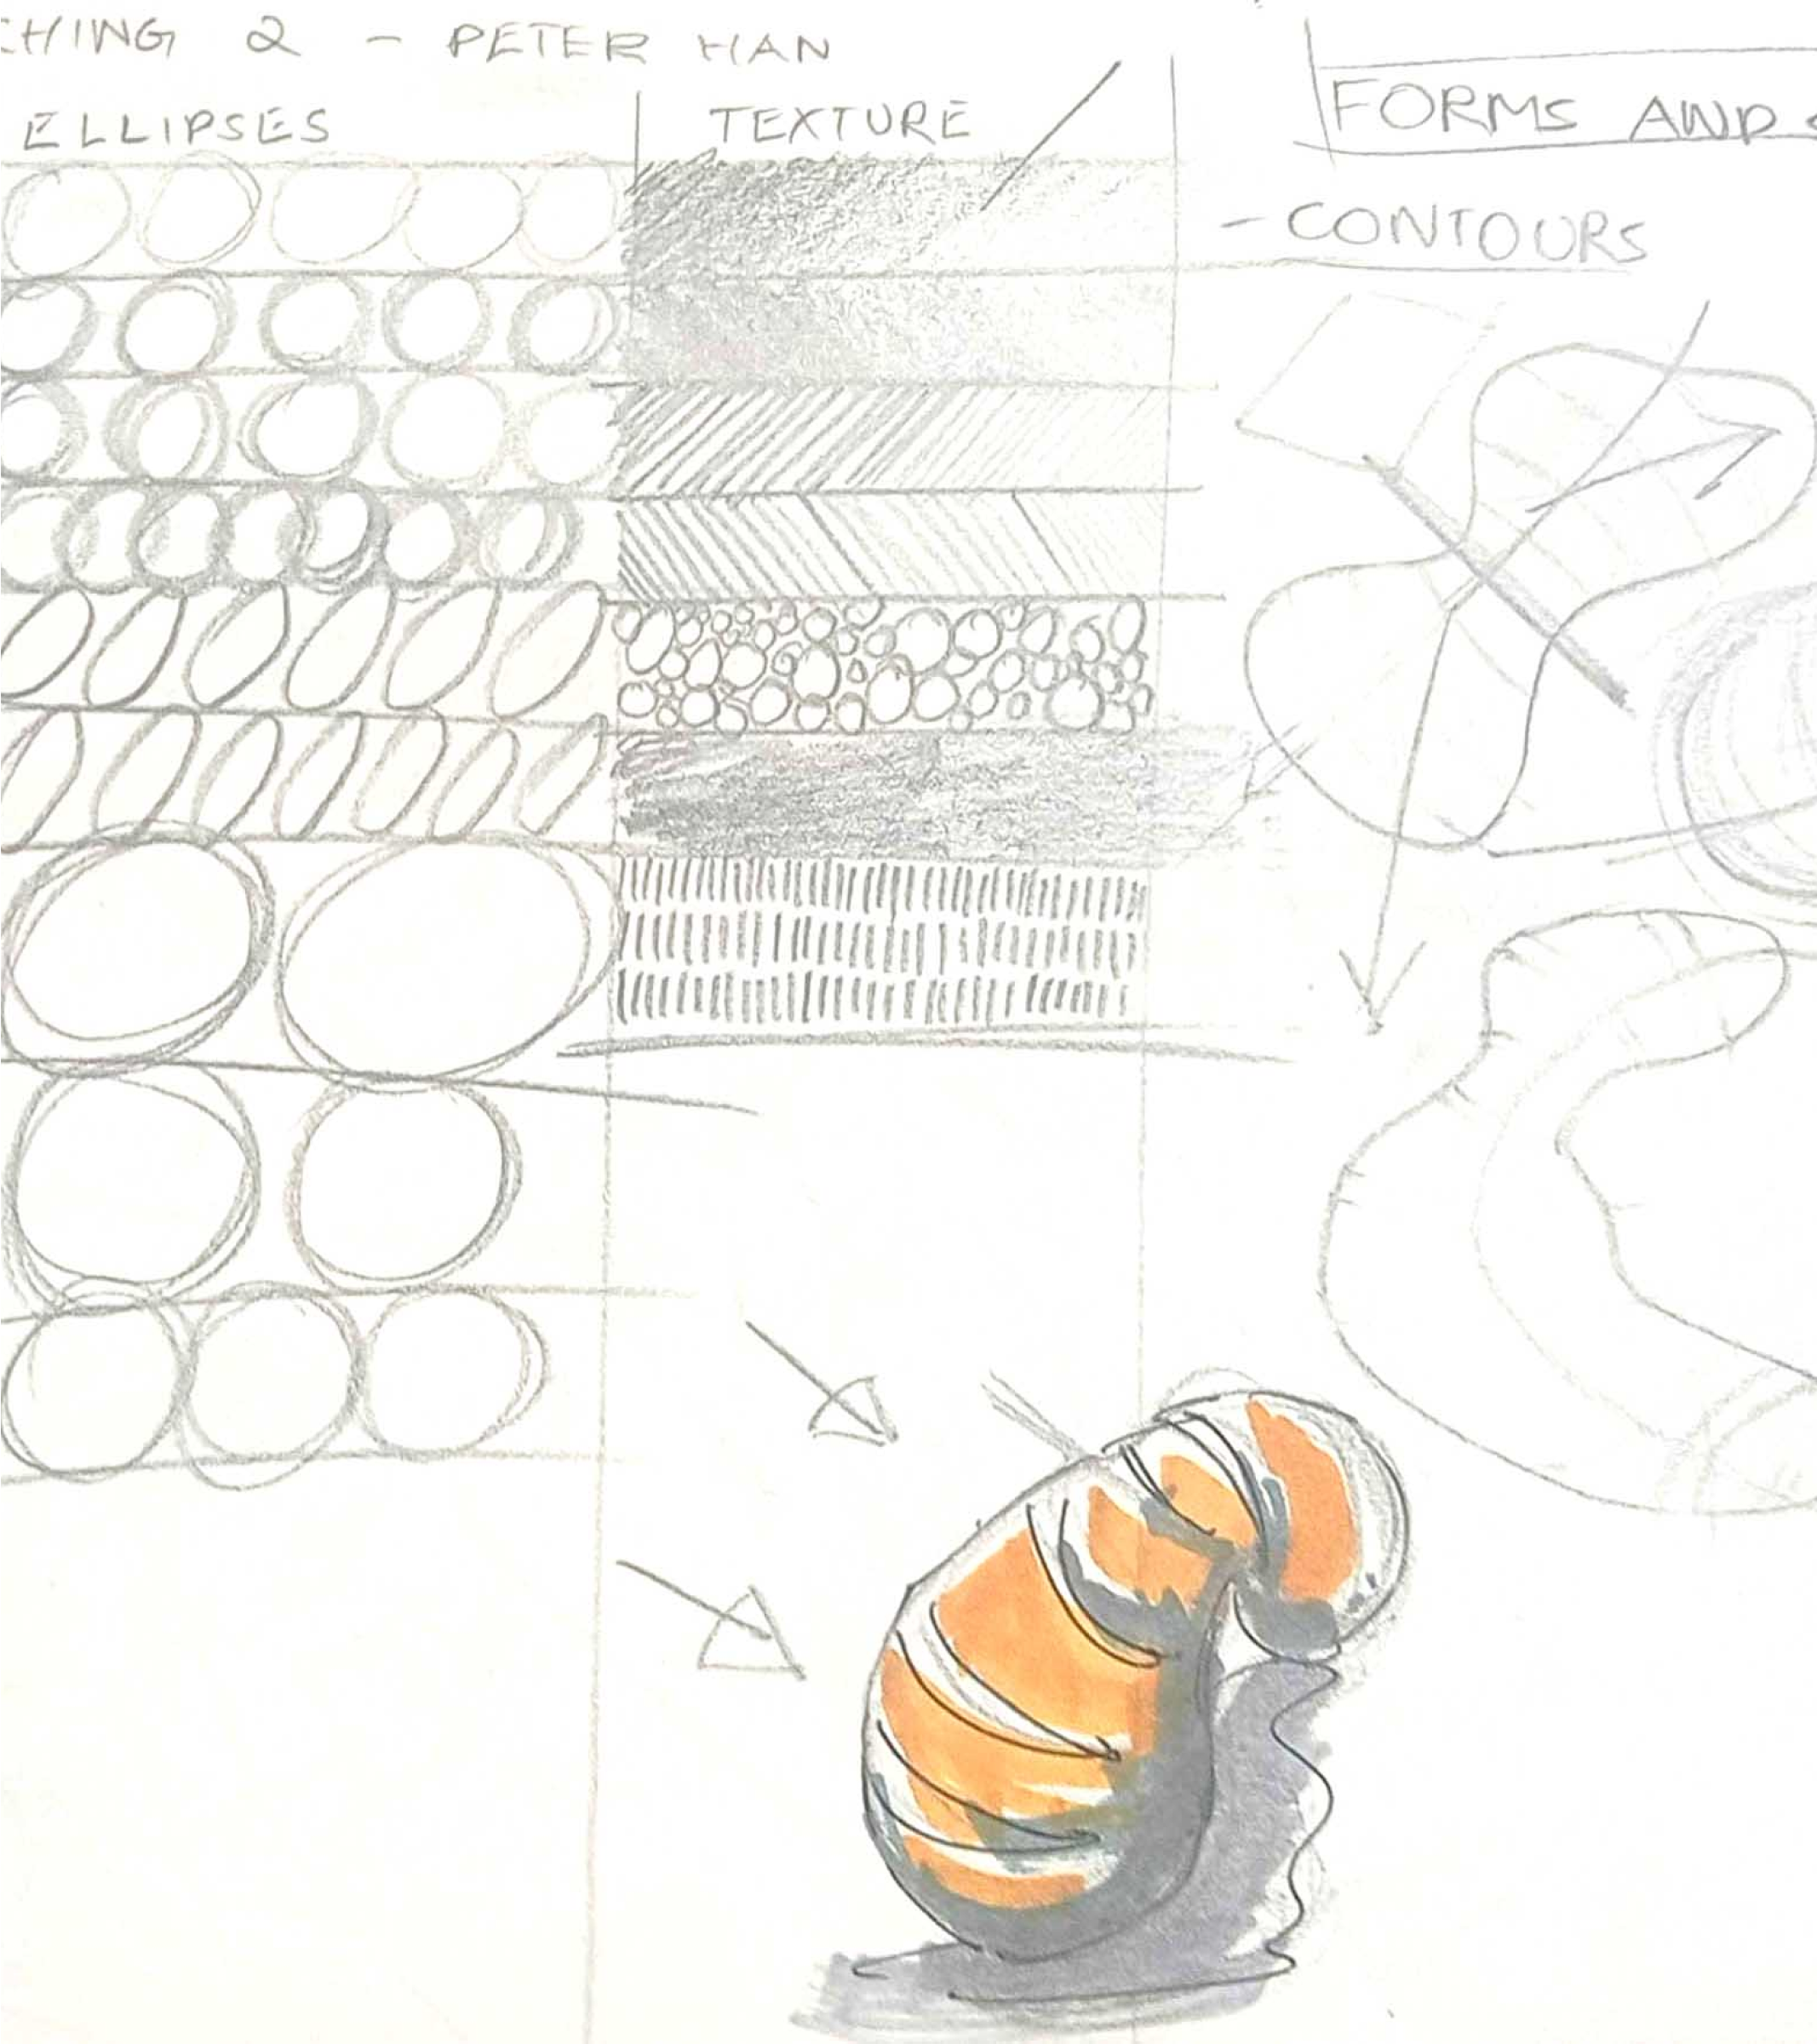 CHING 2 - PETER HAN
ELLIPSES
TEXTURE
FORMS AND
- CONTOURS